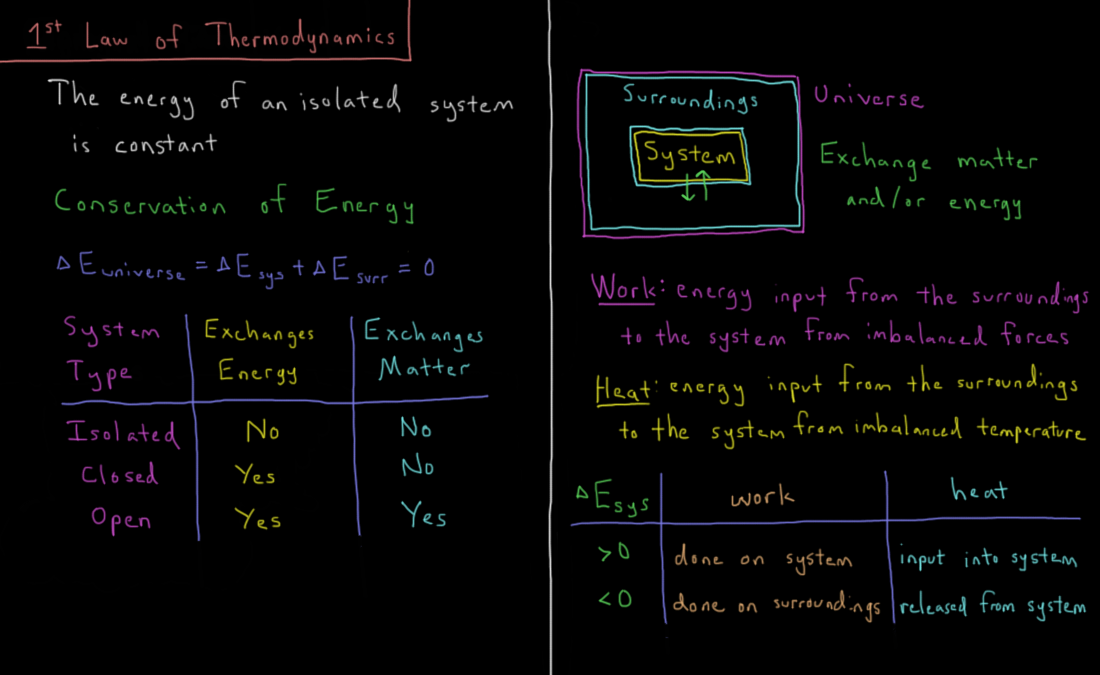 1st Law of Thermodynamics
The energy of an isolated system
is constant
Conservation of Energy
Δ Euniverse = Δ Esys + Δ Esurr = 0
System Type | Exchanges Energy | Exchanges Matter
Isolated | No | No
Closed | Yes | No
Open | Yes | Yes
Surroundings
System
Universe
Exchange matter
and/or energy
Work: energy input from the surroundings
to the system from imbalanced forces
Heat: energy input from the surroundings
to the system from imbalanced temperature
Δ Esys | work | heat
>0 | done on system | input into system
<0 | done on surroundings | released from system